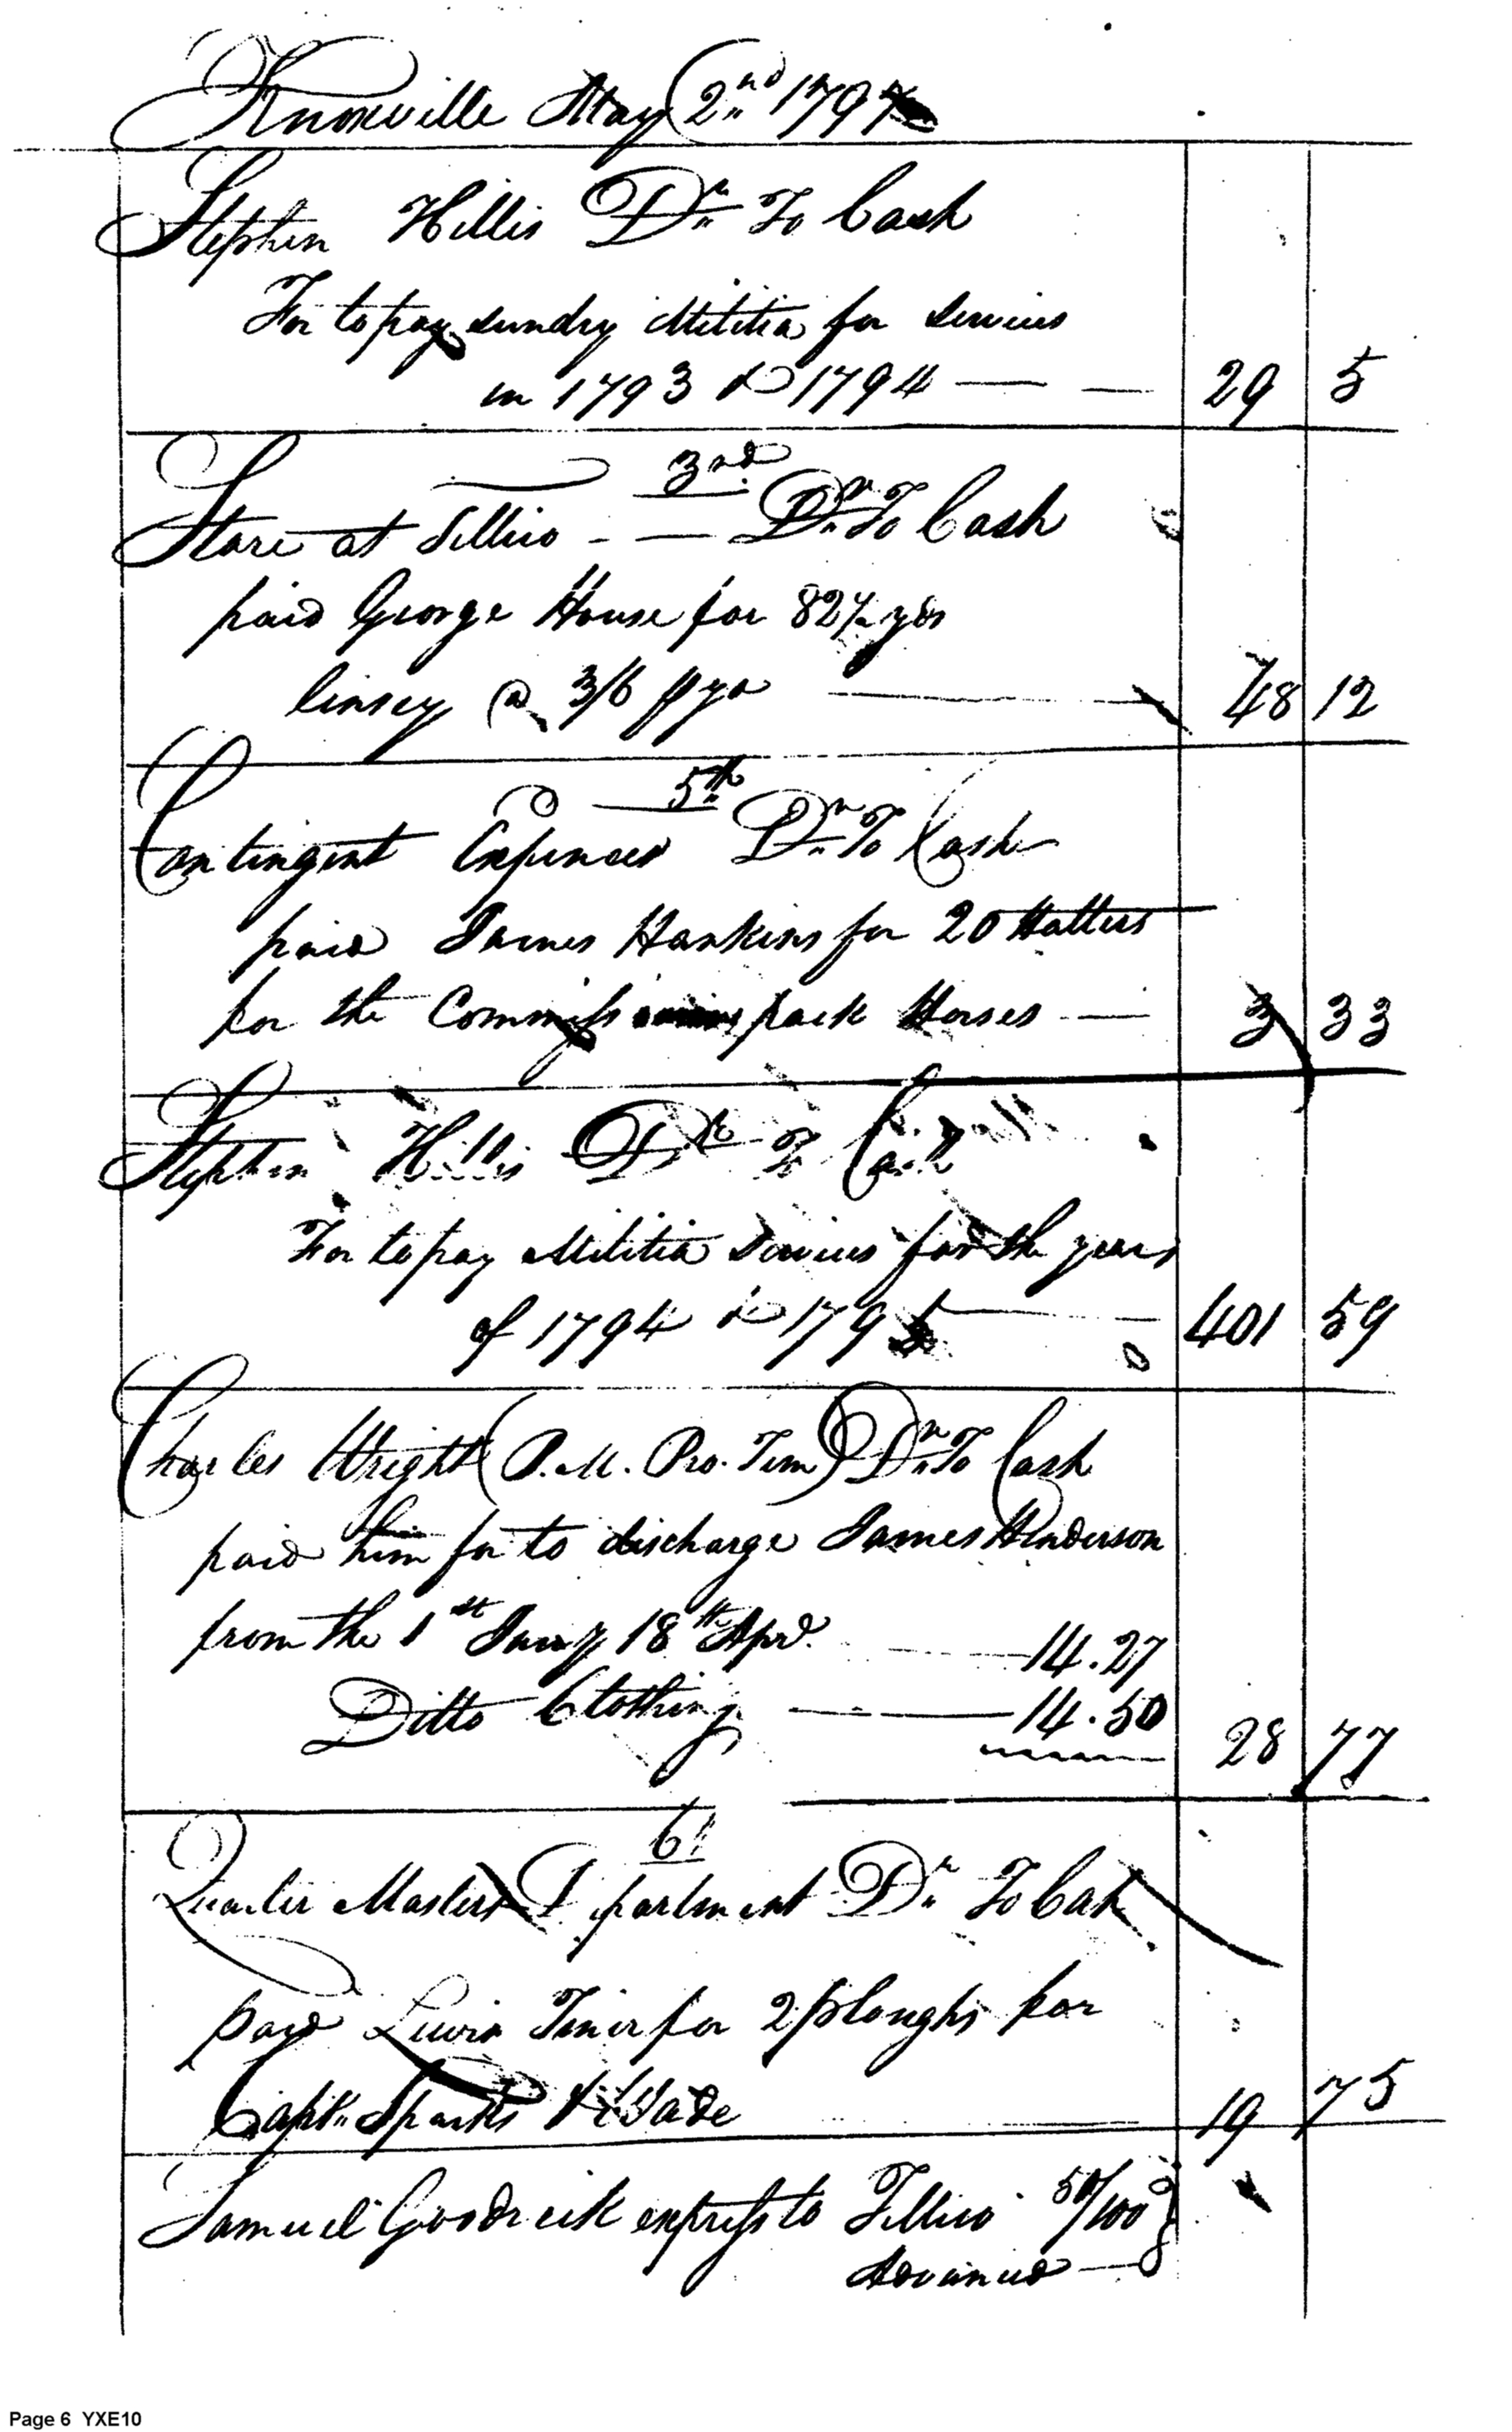 Knoxville May 2nd 1797
Stephen Hillis Dr. To Cash
For to pay sundry Militia for Services
in 1793 & 1794 — — 29 5
3rd
Store at Tellico - — Dr. To Cash
paid George House for 82½ yds
linsey @ 3/6 p yd — 48 12
5th
Contingent Expences Dr. To Cash
paid James Hankins for 20 Halters
for the pack Horses — 3 33
Stephen Hillis Dr. To Cash
For to pay Militia Services for the years
of 1794 & 1795 — 401 59
Charles Wright (P. M. Pro. Tem) Dr. To Cash
paid him for to discharge James Henderson
from the 1st Jany 18th Aprl. — 14.27
Ditto Clothing — 14.50
28 77
6th
Quarter Masters Department Dr. To Cash
paid Lewis for 2 ploughs for
Captn. Sparks & Wade — 19 75
Samuel Goodrick express to Tellico 50/100
Advanced —
Page 6 YXE10